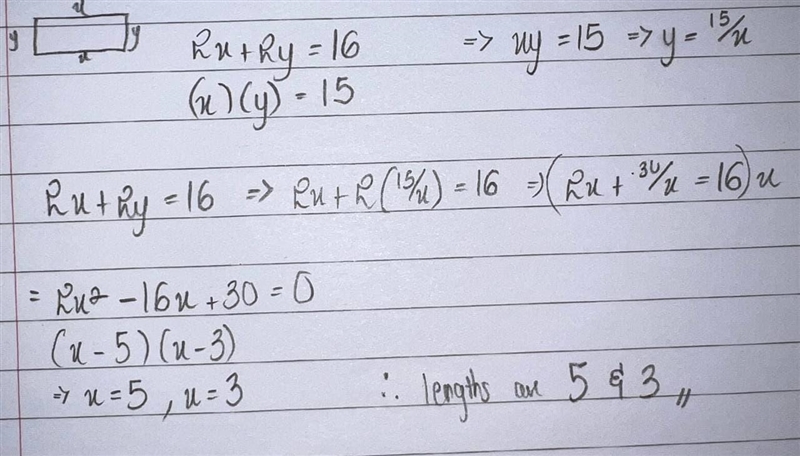 x
y y
x
2x + 2y = 16 => xy = 15 => y = 15/x
(x)(y) = 15
2x + 2y = 16 => 2x + 2(15/x) = 16 => (2x + 30/x = 16)x
= 2x² - 16x + 30 = 0
(x - 5)(x - 3)
=> x = 5, x = 3 ∴ lengths are 5 & 3 //